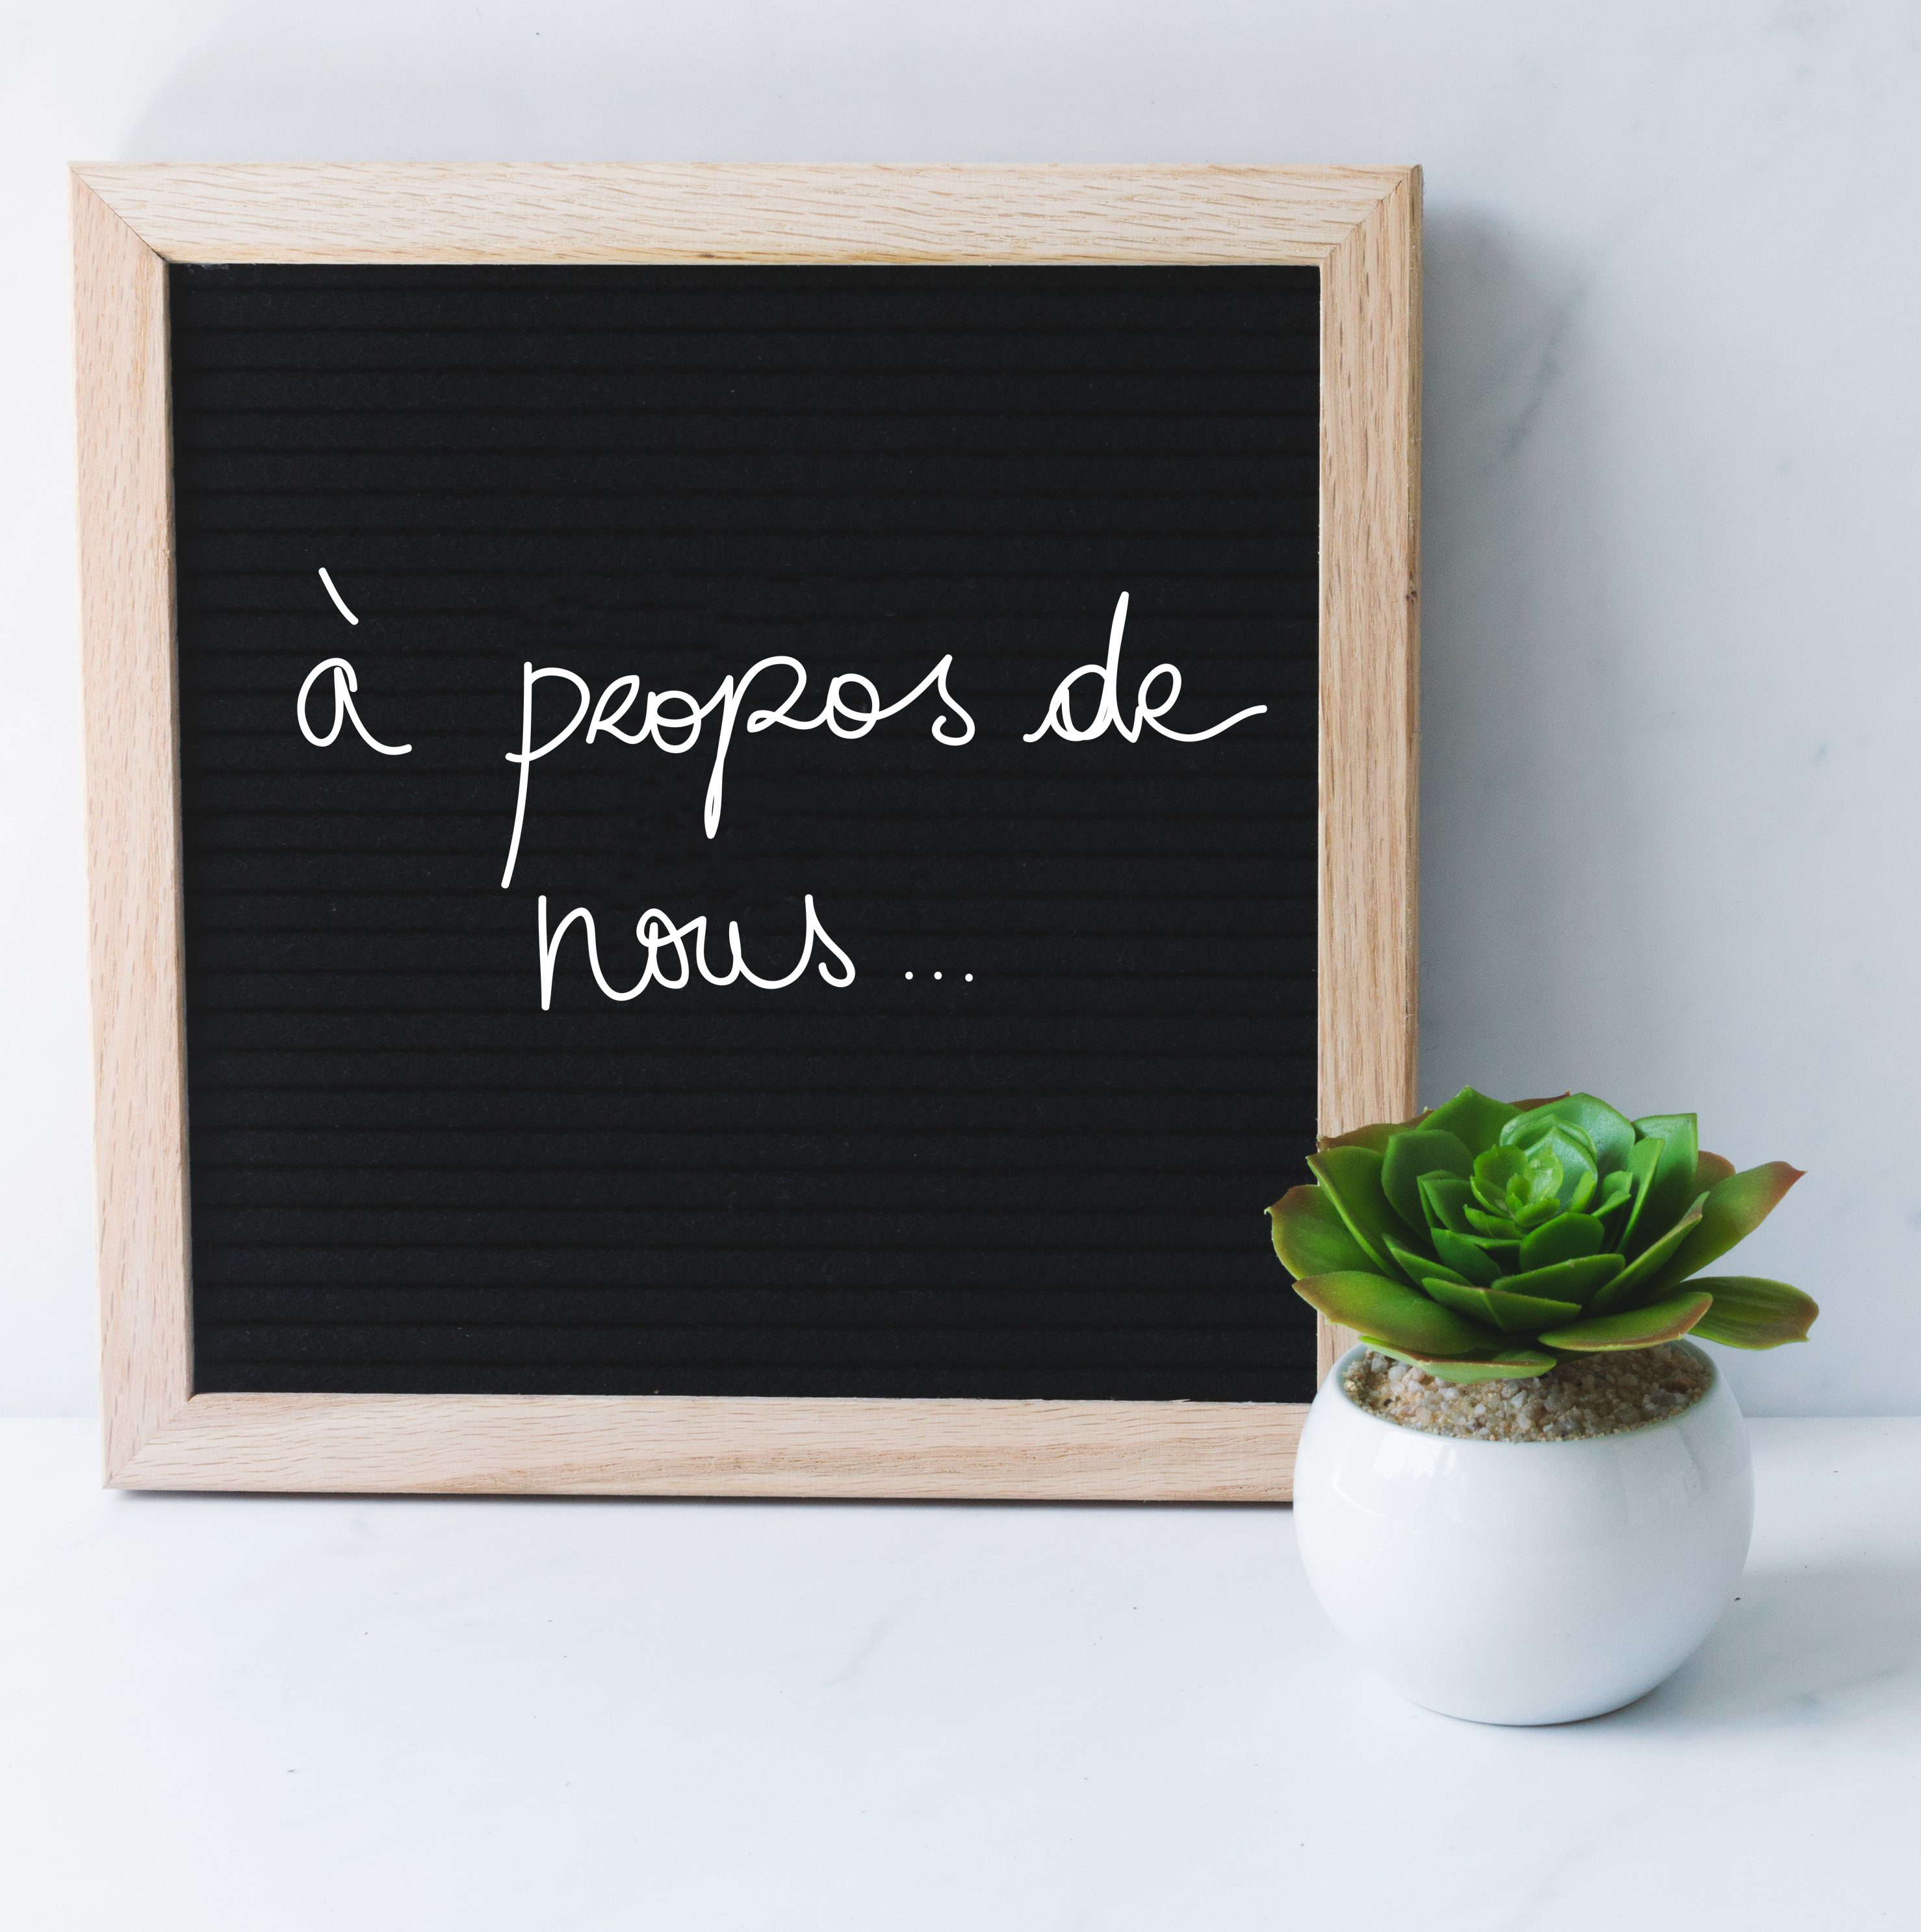 à propos de
nous...